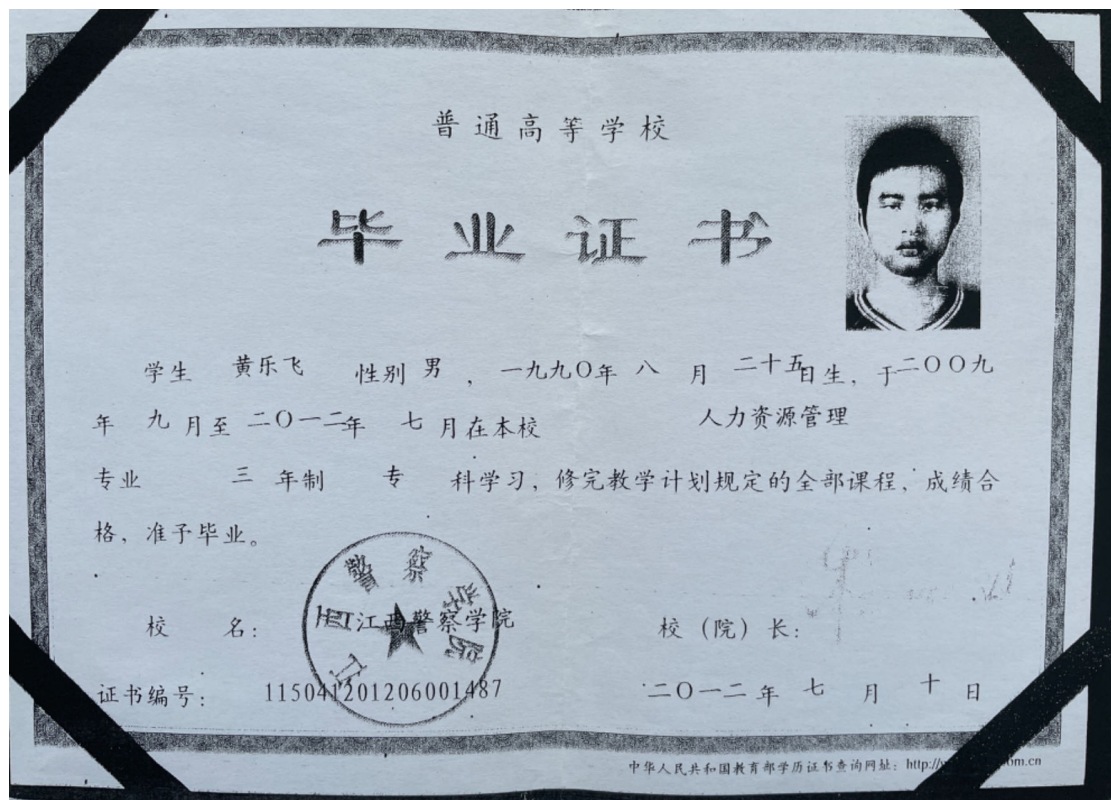 普通高等学校
毕业证书
学生 黄乐飞 性别 男 ，一九九〇年 八 月 二十五日生，于二〇〇九
年 九 月至 二〇一二年 七 月在本校 人力资源管理
专业 三 年制 专 科学习，修完教学计划规定的全部课程，成绩合
格，准予毕业。
江西警察学院
校 名： 江西警察学院 校（院）长：
证书编号： 115041201206001487 二〇一二年 七 月 十 日
中华人民共和国教育部学历证书查询网址：http://